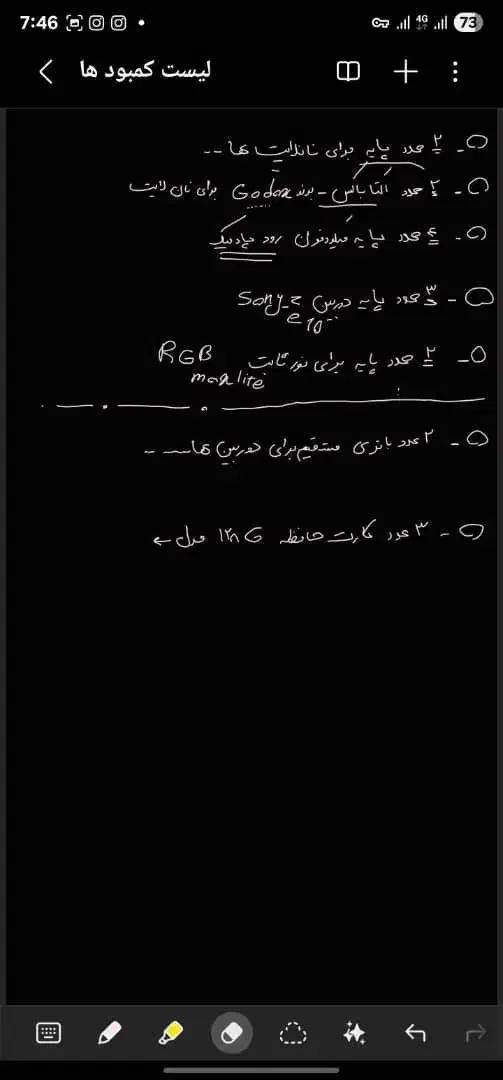 7:46
4G
73
لیست کمبود ها
۲ عدد پایه برای نانلایت ها --
۲ عدد اکتاباکس - برند Godox برای نان لایت
۴ عدد پایه میکروفون رود
۳ عدد پایه دوربین Sony-Z
e10
۲ عدد پایه برای نور ثابت RGB
maxlite
۲ عدد باتری مستقیم برای دوربین ها --
۳ عدد کارت حافظه ۱۲۸G مدل ←